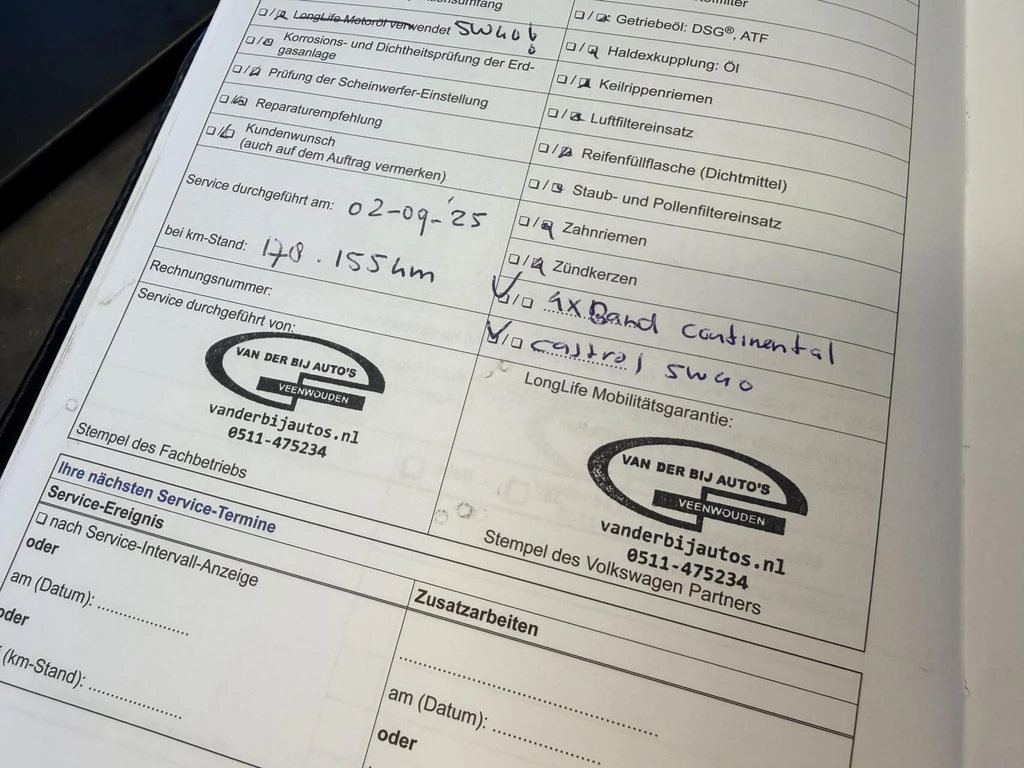 LongLife Motoröl verwendet 5W40!
Korrosions- und Dichtheitsprüfung der Erd-
gasanlage
Prüfung der Scheinwerfer-Einstellung
Reparaturempfehlung
Kundenwunsch
(auch auf dem Auftrag vermerken)
Service durchgeführt am: 02-09-'25
bei km-Stand: 178.155km
Rechnungsnummer:
Service durchgeführt von:
VAN DER BIJ AUTO'S
VEENWOUDEN
vanderbijautos.nl
0511-475234
Stempel des Fachbetriebs
Getriebeöl: DSG®, ATF
Haldexkupplung: Öl
Keilrippenriemen
Luftfiltereinsatz
Reifenfüllflasche (Dichtmittel)
Staub- und Pollenfiltereinsatz
Zahnriemen
Zündkerzen
1x Band Continental
castrol 5W40
LongLife Mobilitätsgarantie:
VAN DER BIJ AUTO'S
VEENWOUDEN
vanderbijautos.nl
0511-475234
Stempel des Volkswagen Partners
Ihre nächsten Service-Termine
Service-Ereignis
nach Service-Intervall-Anzeige
oder
am (Datum):
oder
(km-Stand):
Zusatzarbeiten
am (Datum):
oder